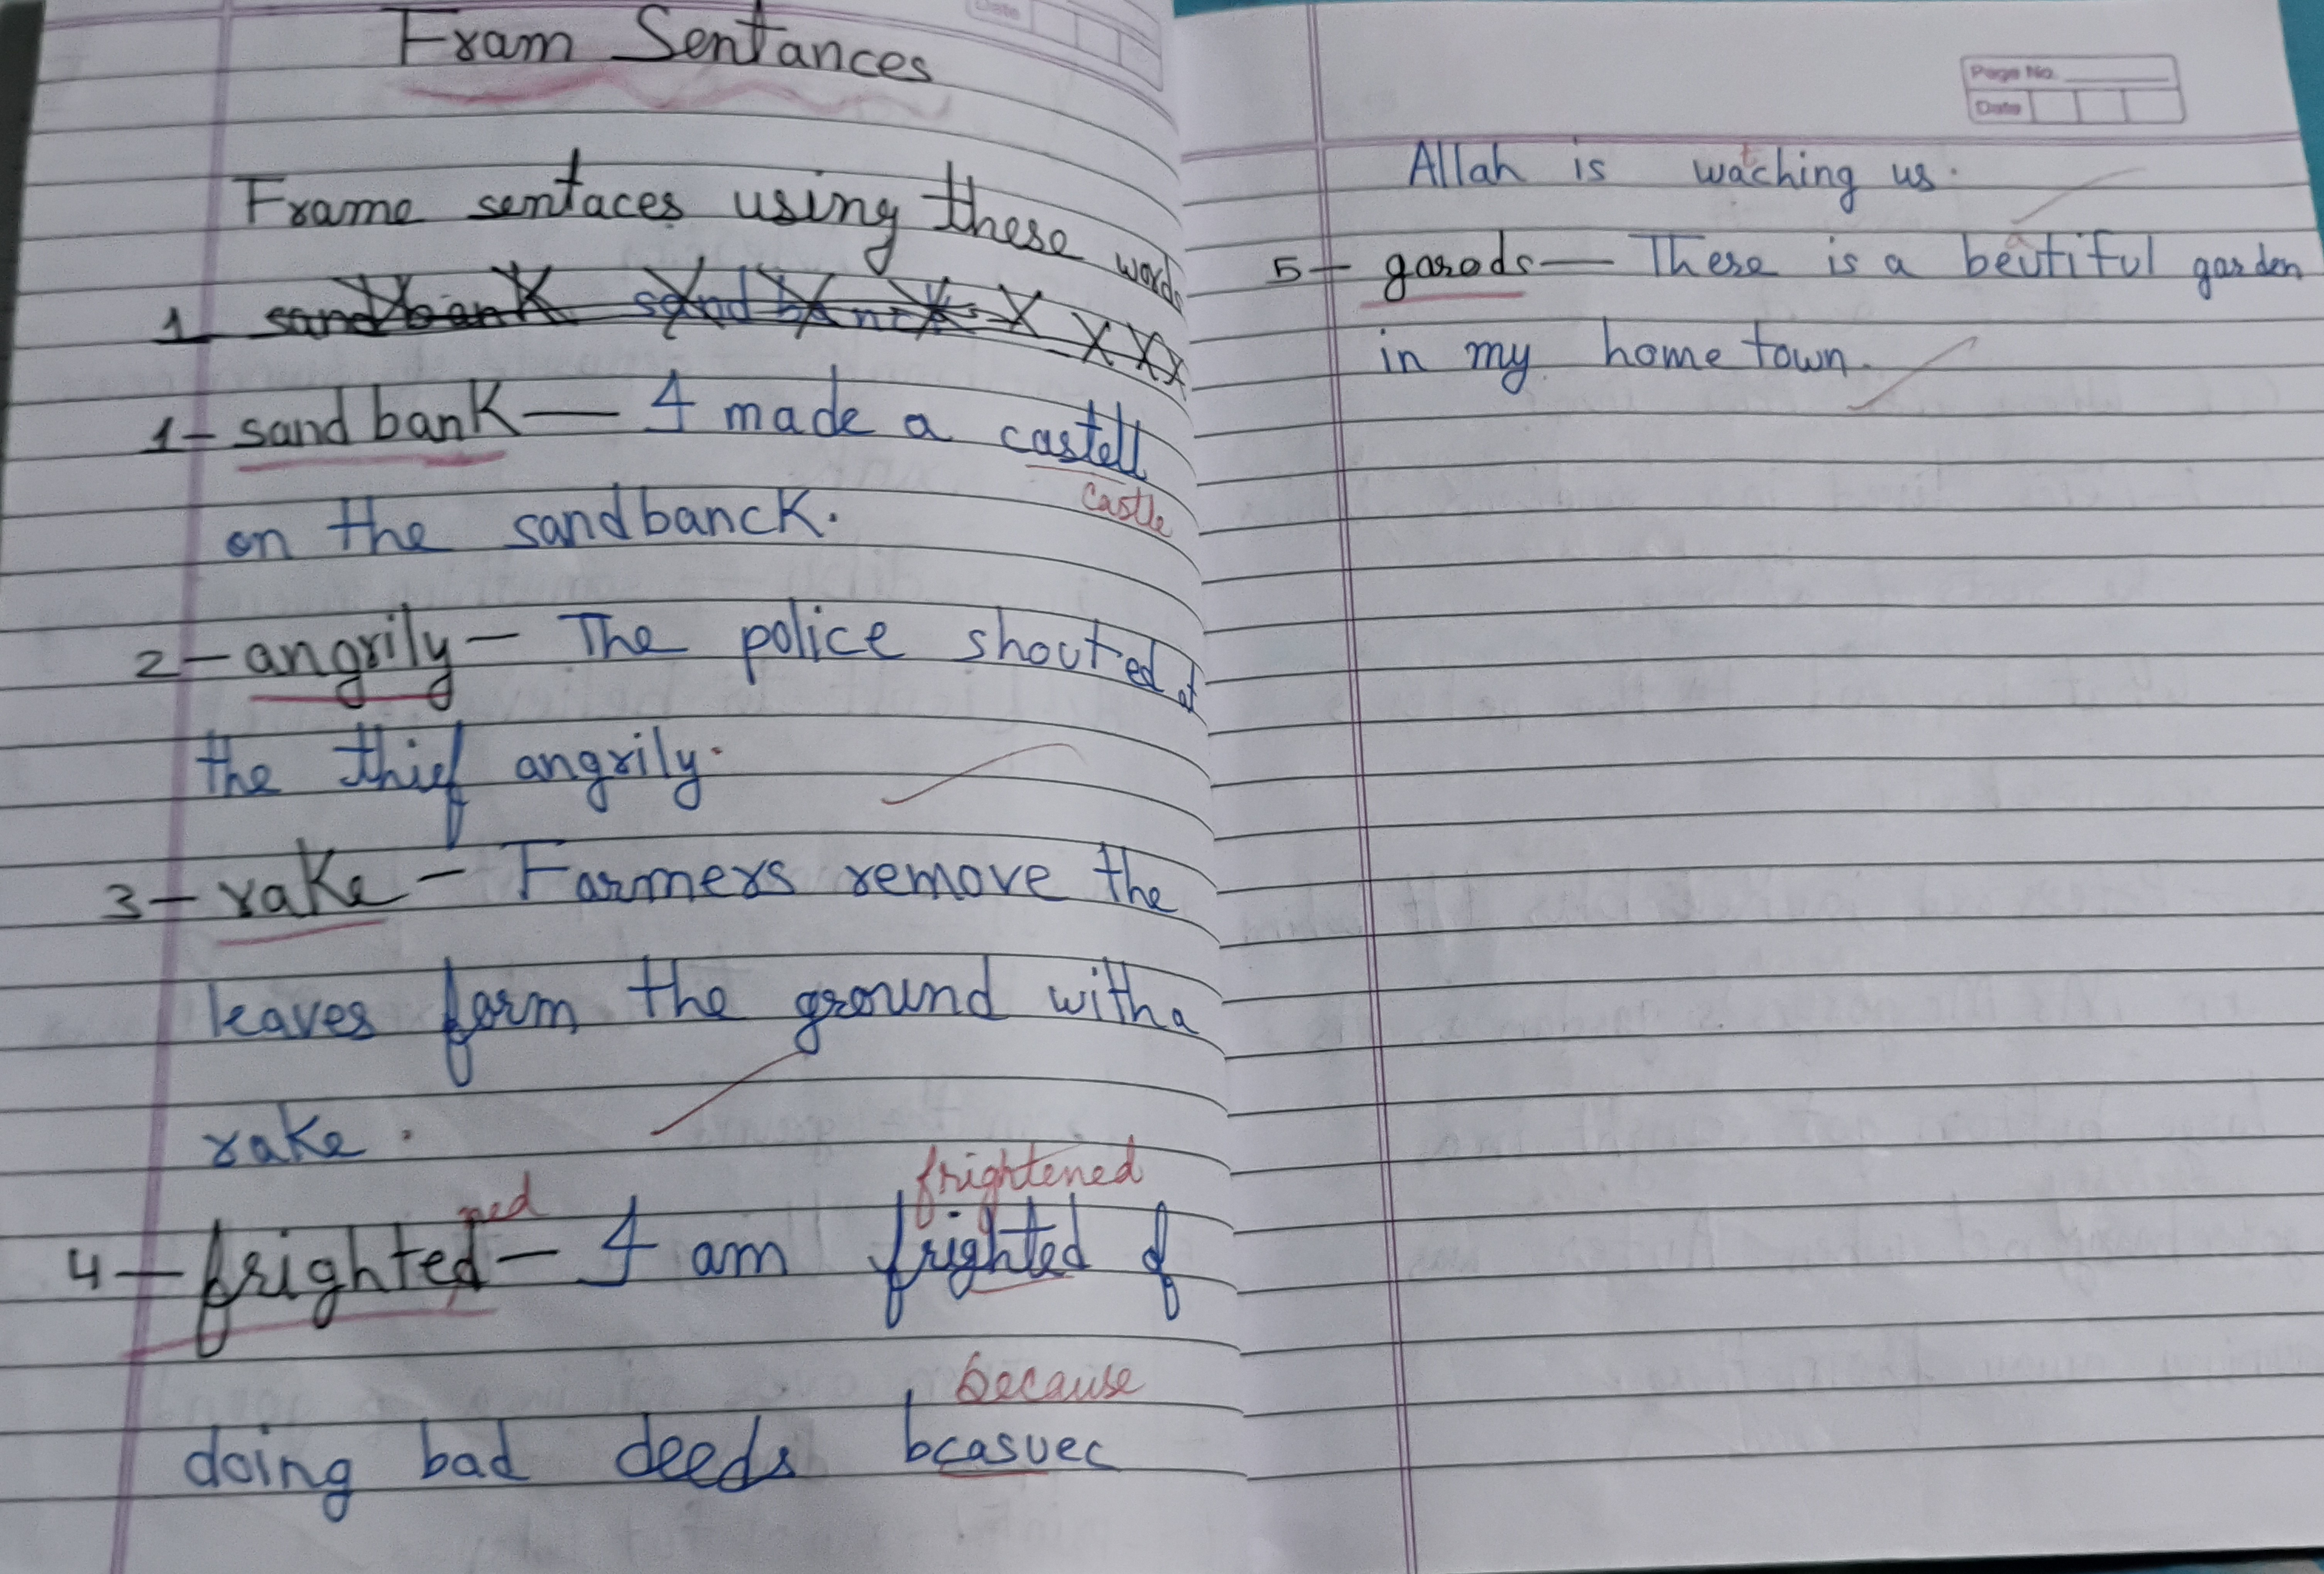 Date
Fram Sentances
Frame sentaces using these words
1 sandbank sand banck
1- sand bank - I made a castell
castle
on the sandbanck.
2 - angrily - The police shouted at
the thief angrily.
3 - rake - Farmers remove the
leaves farm the ground with a
rake.
frightened
ned
4 - frighted - I am frighted of
because
doing bad deeds bcasuec
Page No.
Date
t
Allah is waching us.
a
5 - garods - There is a beutiful garden
in my home town.